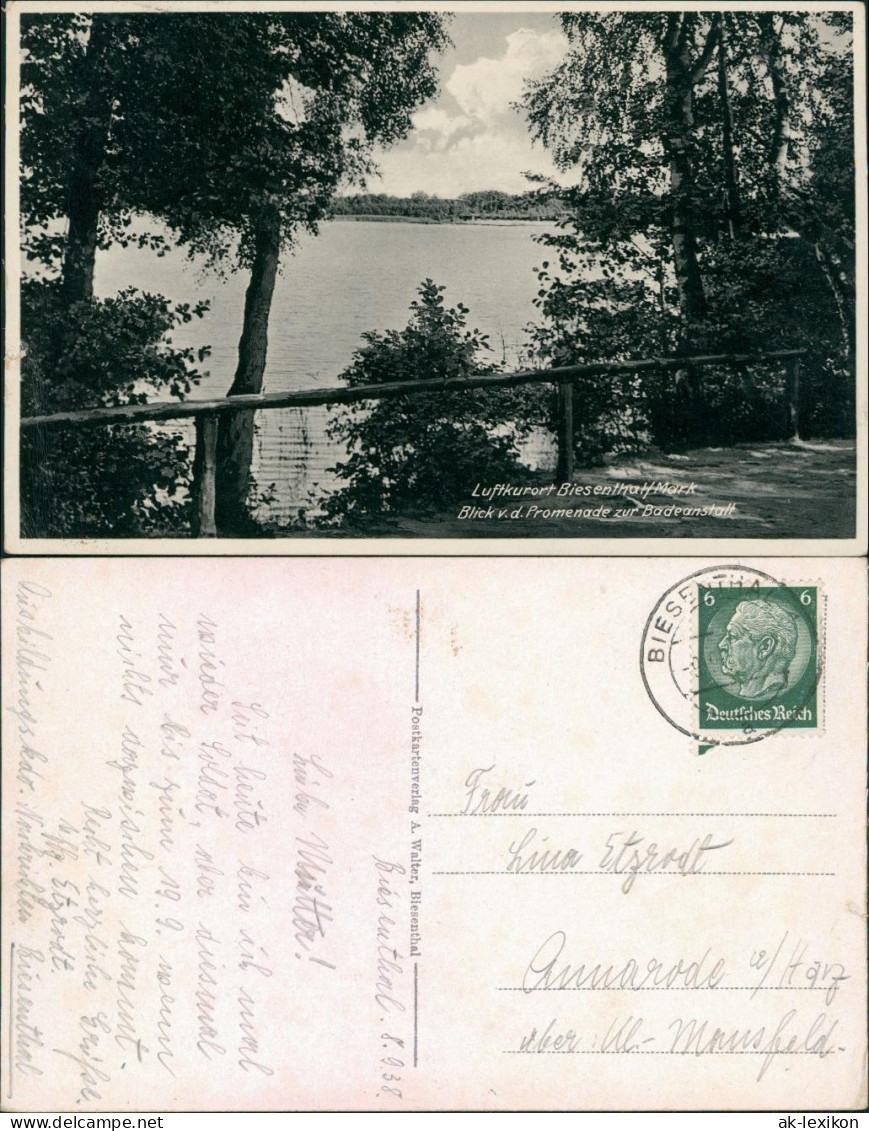 Luftkurort Biesenthal/Mark
Blick v. d. Promenade zur Badeanstalt
BIESENTHA
6 6
Deutsches Reich
a
Postkartenverlag A. Walter, Biesenthal
Biesenthal. 8.9.38.
Liebe Mutter!
Seit heute bin ich mal
wieder Soldat, aber diesmal
nur bis zum 19.9. wenn
nichts dazwischen kommt.
Recht herzliche Grüße.
Uffz. Etzrodt.
Ausbildungskdo. Nachrichten Biesenthal
Frau
Lina Etzrodt
Annarode Harz
über Kl.- Mansfeld.
delcampe.net
ak-lexikon